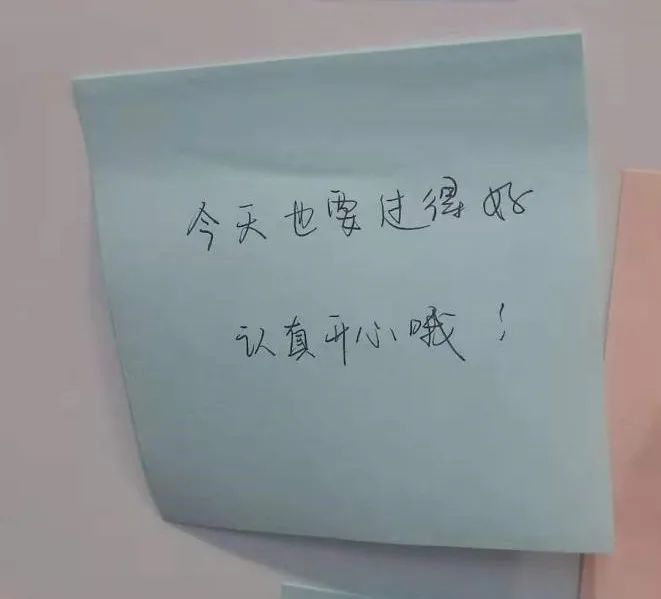 今天也要过得好
认真开心哦！